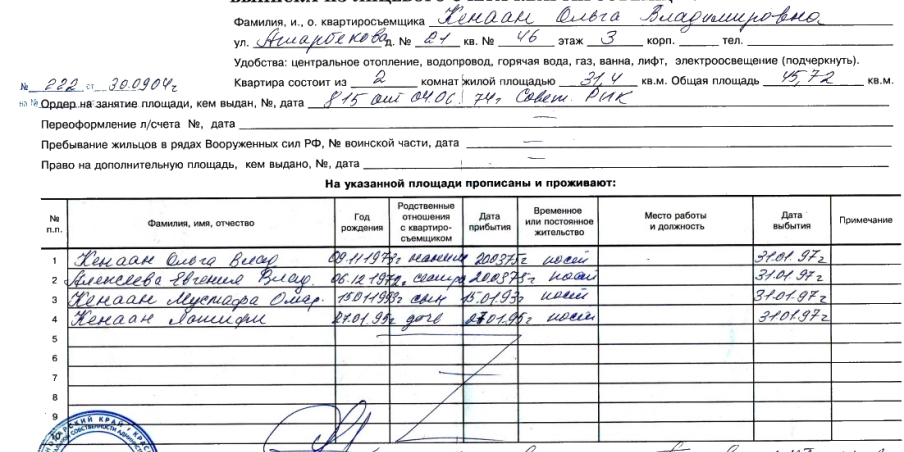 Фамилия, и., о. квартиросъемщика Кенаан Ольга Владимировна
ул. Атарбекова д. № 21 кв. № 46 этаж 3 корп. тел.
Удобства: центральное отопление, водопровод, горячая вода, газ, ванна, лифт, электроосвещение (подчеркнуть).
№ 222 от 30.09.04г Квартира состоит из 2 комнат жилой площадью 31,4 кв.м. Общая площадь 45,72 кв.м.
на № Ордер на занятие площади, кем выдан, №, дата 815 от 04.06. 74г. Совет. РИК
Переоформление л/счета №, дата —
Пребывание жильцов в рядах Вооруженных сил РФ, № воинской части, дата —
Право на дополнительную площадь, кем выдано, №, дата —
На указанной площади прописаны и проживают:
№ п.п. Фамилия, имя, отчество Год рождения Родственные отношения с квартиросъемщиком Дата прибытия Временное или постоянное жительство Место работы и должность Дата выбытия Примечание
1 Кенаан Ольга Влад 09.11.1973г 200375г 31.01.97г
2 Алексеева Евгения Влад. 06.12.1972г. сестра 200375г 31.01.97г
3 Кенаан Мустафа Омар. 15.01.1993г сын 15.01.93г 31.01.97г
4 Кенаан 27.01.95г дочь 27.01.95г 31.01.97г
5
6
7
8
9